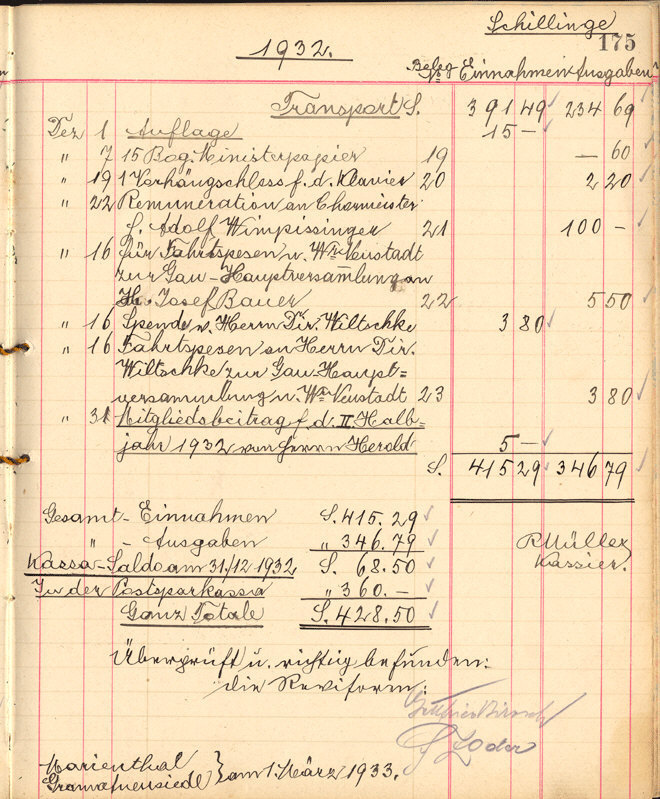 Schillinge
175
1932.
Beleg № Einnahmen Ausgaben
Transport S. 391 49 234 69
Dez 1 Auflage 15 –
" 7 15 Bog. Ministerpapier 19 – 60
" 19 1 Vorhängschloss f. d. Klavier 20 2 20
" 22 Remuneration an Chormeister
H. Adolf Wimpissinger 21 100 –
" 16 für Fahrtspesen n. Wr Neustadt
zur Gau-Hauptversammlung an
Hr. Josef Bauer 22 5 50
" 16 Spende v. Herrn Dir. Wiltschke 3 80
" 16 Fahrtspesen an Herrn Dir.
Wiltschke zur Gau-Haupt=
versammlung n. Wr Neustadt 23 3 80
" 31 Mitgliedsbeitrag f. d. II. Halb-
jahr 1932 von Herrn Herold 5 –
S. 415 29 346 79
Gesamt-Einnahmen S. 415.29
" - Ausgaben " 346.79
Kassa-Saldo am 31./12 1932 S. 68.50
In der Postsparkassa " 360.–
Ganz Totale S. 428.50
R Müller
Kassier.
Überprüft u. richtig befunden:
die Revisoren:
Zoder
Marienthal
Gramatneusiedl } am 1. März 1933.